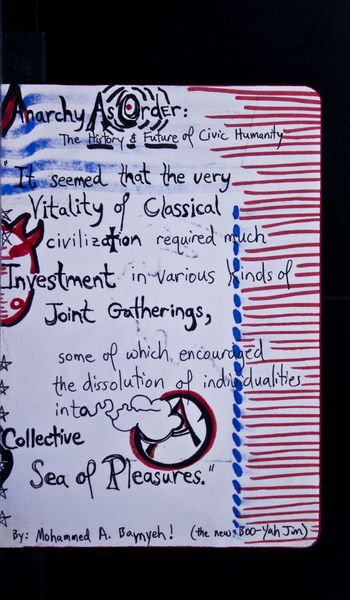 Anarchy As Order:
The History & Future of Civic Humanity
"It seemed that the very
Vitality of Classical
civilization required much
Investment in various kinds of
Joint Gatherings,
some of which encouraged
the dissolution of individualities
into a
Collective
Sea of Pleasures."
By: Mohammed A. Bamyeh! (the new Boo-Yah Jim)